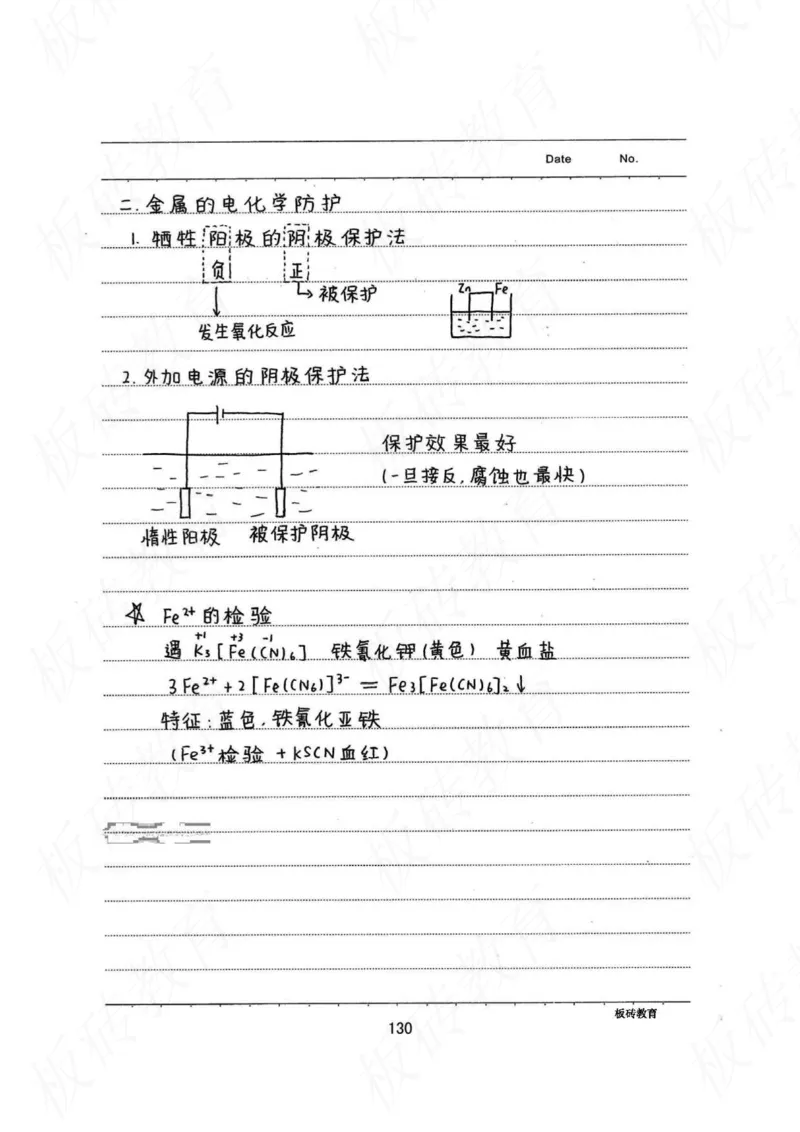 Date No.
二.金属的电化学防护
1. 牺牲阳极的阴极保护法
负 正
→被保护
Zn Fe
发生氧化反应
2.外加电源的阴极保护法
保护效果最好
(一旦接反,腐蚀也最快)
惰性阳极 被保护阴极
☆ Fe²⁺的检验
+1 +3 -1
遇 K₃[Fe(CN)₆] 铁氰化钾(黄色) 黄血盐
3Fe²⁺+2[Fe(CN₆)]³⁻ = Fe₃[Fe(CN)₆]₂↓
特征:蓝色.铁氰化亚铁
(Fe³⁺检验 +KSCN血红)
板砖教育
130